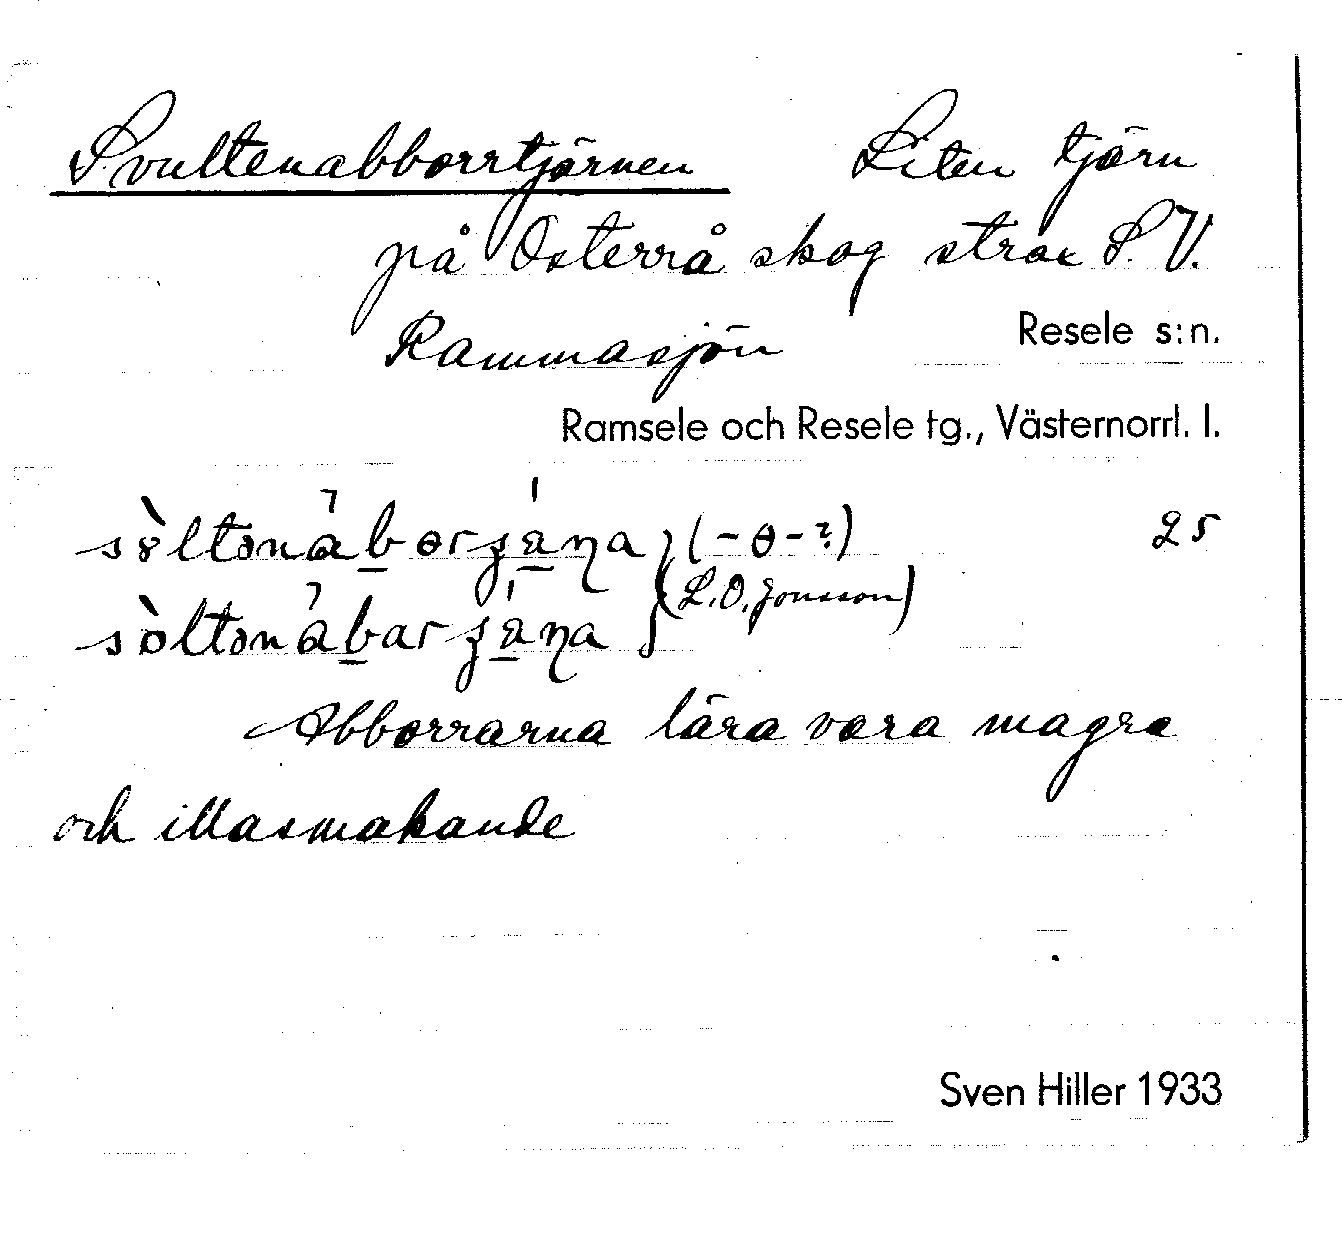 Svultenabborrtjärnen Liten tjärn
på Österrå skog strax S.V.
Rammasjön Resele s:n.
Ramsele och Resele tg., Västernorrl. l.
(-ɵ-?) 25
(L.O. Jonsson)
Abborrarna lära vara magra
och illasmakande
Sven Hiller 1933